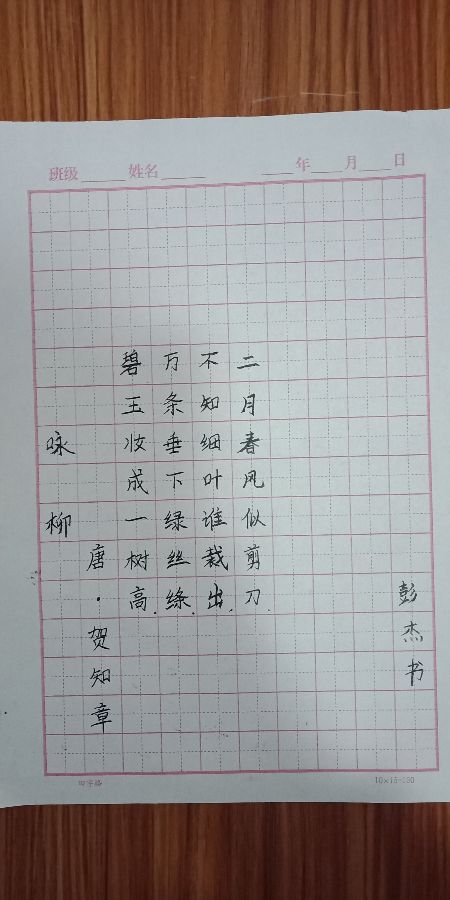 班级 姓名 年 月 日
咏柳
唐·贺知章
碧玉妆成一树高
万条垂下绿丝绦.
不知细叶谁裁出.
二月春风似剪刀.
彭杰书